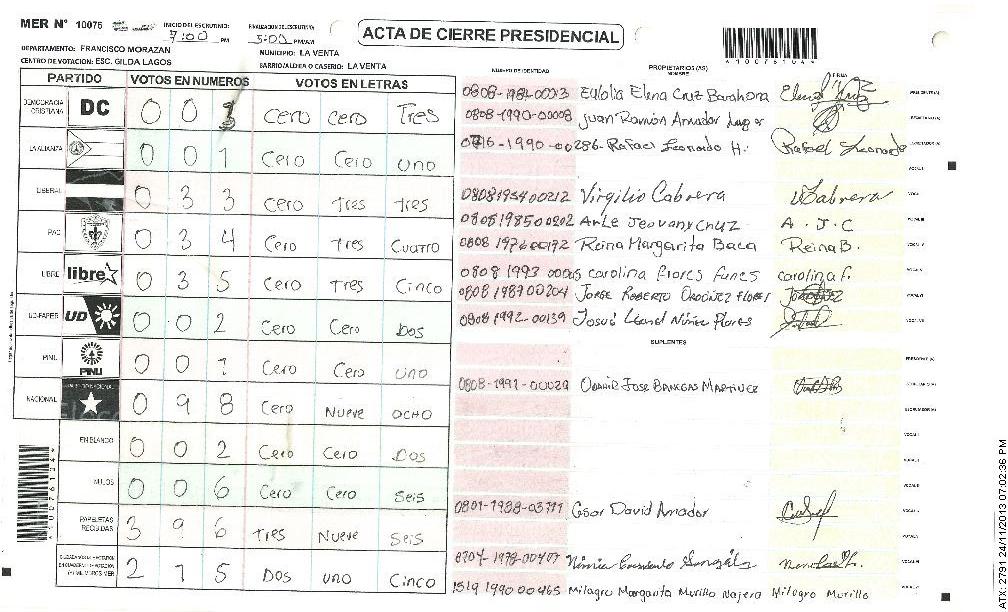 MER N° 10076
INICIO DEL ESCRUTINIO:
7:00 PM
FINALIZACION DEL ESCRUTINIO:
5:00 PM/AM
ACTA DE CIERRE PRESIDENCIAL
A10076104A
DEPARTAMENTO: FRANCISCO MORAZAN
MUNICIPIO: LA VENTA
CENTRO DE VOTACION: ESC. GILDA LAGOS
BARRIO/ALDEA O CASERIO: LA VENTA
PARTIDO VOTOS EN NUMEROS VOTOS EN LETRAS
DEMOCRACIA CRISTIANA DC 0 0 3 Cero Cero Tres
LA ALIANZA 0 0 1 Cero Cero Uno
LIBERAL 0 3 3 Cero Tres Tres
PAC 0 3 4 Cero Tres Cuatro
LIBRE libre 0 3 5 Cero Tres Cinco
UD-FAPER UD 0 0 2 Cero Cero Dos
PINU PINU 0 0 1 Cero Cero Uno
NACIONAL 0 9 8 Cero Nueve Ocho
EN BLANCO 0 0 2 Cero Cero Dos
NULOS 0 0 6 Cero Cero Seis
PAPELETAS RECIBIDAS 3 9 6 Tres Nueve Seis
2 1 5 Dos Uno Cinco
NUMERO DE IDENTIDAD
PROPIETARIOS (AS)
NOMBRE
FIRMA
Eulolia Elena Cruz Barahona
0808-1990-00008 Juan Ramón Amador
Rafael Leonardo H. Rafael Leonardo
Virgilio Cabrera VCabrera
0808198500202 A.J.C
Reina Margarita Baca Reina B.
Carolina Flores Funes carolina f.
0808198700204 Jorge Roberto Ordoñez Flores
0808 1992-00139 Josué Leonel Núñez Flores
SUPLENTES
0808-1991-00029 Jose Banegas Martinez
Cesar David Amador
1519 1990 00465 Milagro Margarita Murillo Najera Milagro Murillo
A10076104A
ATX 2791 24/11/2013 07:02:36 PM